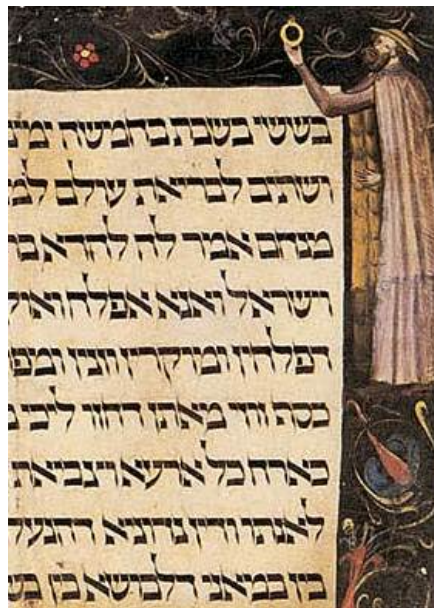 בששי בשבת בחמשה
ושתים לבריאת עולם
מנחם אמר לה להדא
וישראל ואנא אפלח
דפלחין ומיקרין וזנין
כסף זוזי מאתן דחזו ליכי
כארח כל ארעא וצביאת
לאנתו ודין נדוניא
בין במאני דלבושא בין